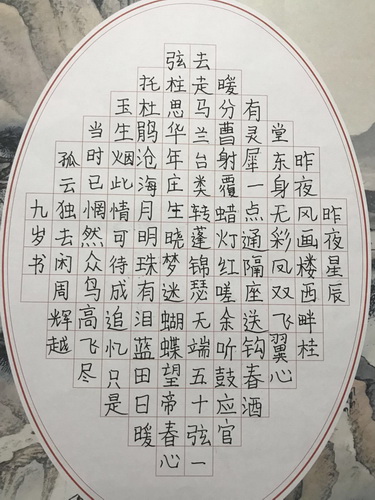 昨夜星辰
昨夜风画楼西畔桂
堂东身无彩凤双飞翼心
有灵犀一点通隔座送钩春酒
暖分曹射覆蜡灯红嗟余听鼓应官
去走马兰台类转蓬锦瑟无端五十弦一
弦柱思华年庄生晓梦迷蝴蝶望帝春心
托杜鹃沧海月明珠有泪蓝田日暖
玉生烟此情可待成追忆只是
当时已惘然众鸟高飞尽
孤云独去闲周辉越
九岁书